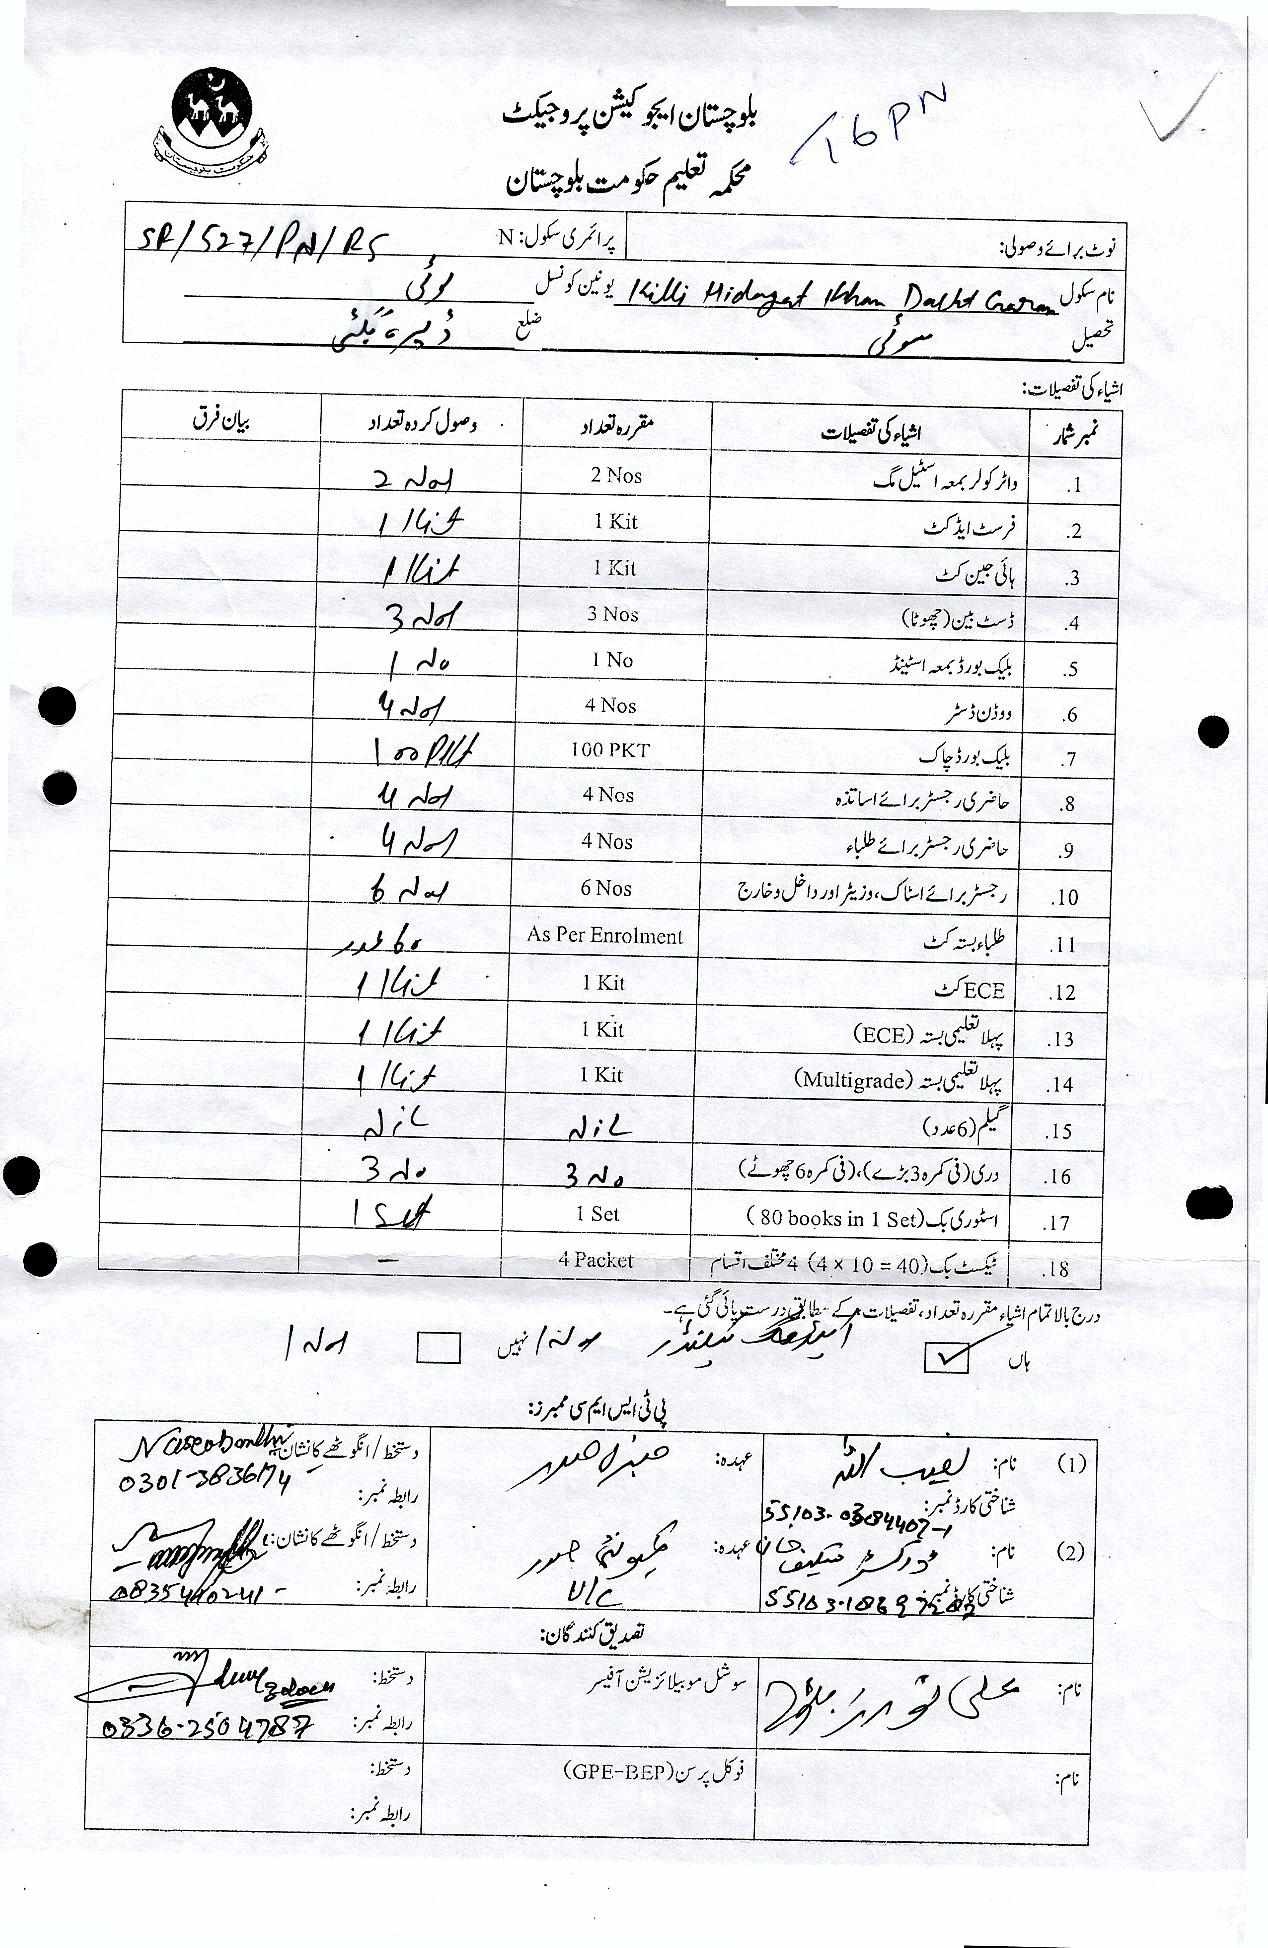 بلوچستان ایجوکیشن پروجیکٹ
16PN
محکمہ تعلیم حکومت بلوچستان
حکومت بلوچستان
نوٹ برائے وصولی: پرائمری سکول: N SR/527/PN/RS
نام سکول Killi Hidayat Khan Dasht Goran یونین کونسل سوئی
تحصیل سوئی ضلع ڈیرہ بگٹی
اشیاء کی تفصیلات:
نمبر شمار اشیاء کی تفصیلات مقررہ تعداد وصول کردہ تعداد بیان فرق
.1 واٹر کولر بمعہ اسٹیل مگ 2 Nos 2 Nos
.2 فرسٹ ایڈ کٹ 1 Kit 1 Kit
.3 ہائی جین کٹ 1 Kit 1 Kit
.4 ڈسٹ بین (چھوٹا) 3 Nos 3 Nos
.5 بلیک بورڈ بمعہ اسٹینڈ 1 No 1 No
.6 ووڈن ڈسٹر 4 Nos 4 Nos
.7 بلیک بورڈ چاک 100 PKT 100 PKT
.8 حاضری رجسٹر برائے اساتذہ 4 Nos 4 Nos
.9 حاضری رجسٹر برائے طلباء 4 Nos 4 Nos
.10 رجسٹر برائے اسٹاک، وزیٹر اور داخل و خارج 6 Nos 6 Nos
.11 طلباء بستہ کٹ As Per Enrolment 60 عدد
.12 ECE کٹ 1 Kit 1 Kit
.13 پہلا تعلیمی بستہ (ECE) 1 Kit 1 Kit
.14 پہلا تعلیمی بستہ (Multigrade) 1 Kit 1 Kit
.15 گلیم (6 عدد) Nil Nil
.16 دری (فی کمرہ 3 بڑے)، (فی کمرہ 6 چھوٹے) 3 No 3 No
.17 اسٹوری بک (80 books in 1 Set) 1 Set 1 Set
.18 ٹیکسٹ بک (4 × 10 = 40) 4 مختلف اقسام 4 Packet —
درج بالا تمام اشیاء مقررہ تعداد، تفصیلات کے مطابق درست پائی گئی ہے۔
ہاں نہیں 1 Nos
پی ٹی ایس ایم سی ممبرز:
(1) نام: نصیب اللہ عہدہ: دستخط / انگوٹھے کا نشان:
شناختی کارڈ نمبر: رابطہ نمبر: 0301-3836174
(2) نام: عہدہ: کمیونٹی صدر دستخط / انگوٹھے کا نشان:
شناختی کارڈ نمبر: U/C رابطہ نمبر:
تصدیق کنندگان:
نام: علی نواز بلوچ سوشل موبیلائزیشن آفیسر دستخط:
رابطہ نمبر: 0336-2504787
نام: فوکل پرسن (GPE-BEP) دستخط:
رابطہ نمبر: